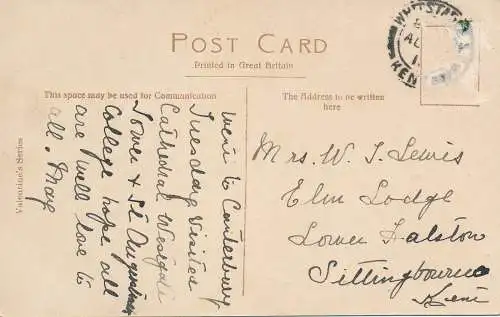 POST CARD
Printed in Great Britain
This space may be used for Communication
The Address to be written
here
Valentine's Series
WHITSTA
AU
KEN
went to Canterbury
Tuesday visited
Cathedral Westgate
Tower & St Augustines
College hope all
are well love to
all. May
Mrs. W. J. Lewis
Elm Lodge
Lower Halston
Sittingbourne
Kent